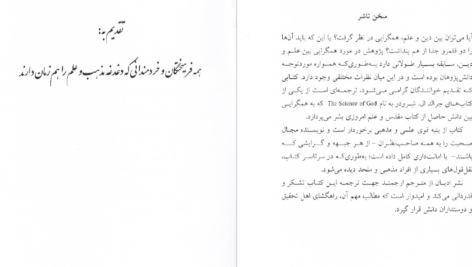 سخن ناشر
آیا می‌توان بین دین و علم، همگرایی در نظر گرفت؟ یا این که باید آن‌ها
را دو قلمرو جدا از هم پنداشت؟ پژوهش در مورد همگرایی بین علم و
دین، سابقه بسیار طولانی دارد به‌طوری‌که همواره موردتوجه
دانش‌پژوهان بوده است و در این میان نظرات مختلفی وجود دارد. کتابی
که تقدیم خوانندگان گرامی می‌شود، ترجمه‌ای است از یکی از
کتاب‌های جرالد ال. شرودر به نام The Science of God که به همگرایی
بین دانش حاصل از کتاب مقدس و علم امروزی بشر می‌پردازد.
کتاب از بنیه قوی علمی و مذهبی برخوردار است و نویسنده مجال
صحبت را به همه صاحب‌نظران – از هر جبهه و گرایشی که
باشند – با امانت‌داری کامل داده است؛ به‌طوری‌که در سرتاسر کتاب،
نقل‌قول‌های بسیاری از افراد مذهبی و ملحد دیده می‌شود.
نشر ادیان از مترجم ارجمند جهت ترجمه این کتاب تشکر و
قدردانی می‌کند و امیدوار است که مطالب مهم آن، راهگشای اهل تحقیق
و دوستداران دانش قرار گیرد.
تقدیم به:
همه فرهیختگان و خردمندانی که دغدغه مذهب و علم را هم زمان دارند